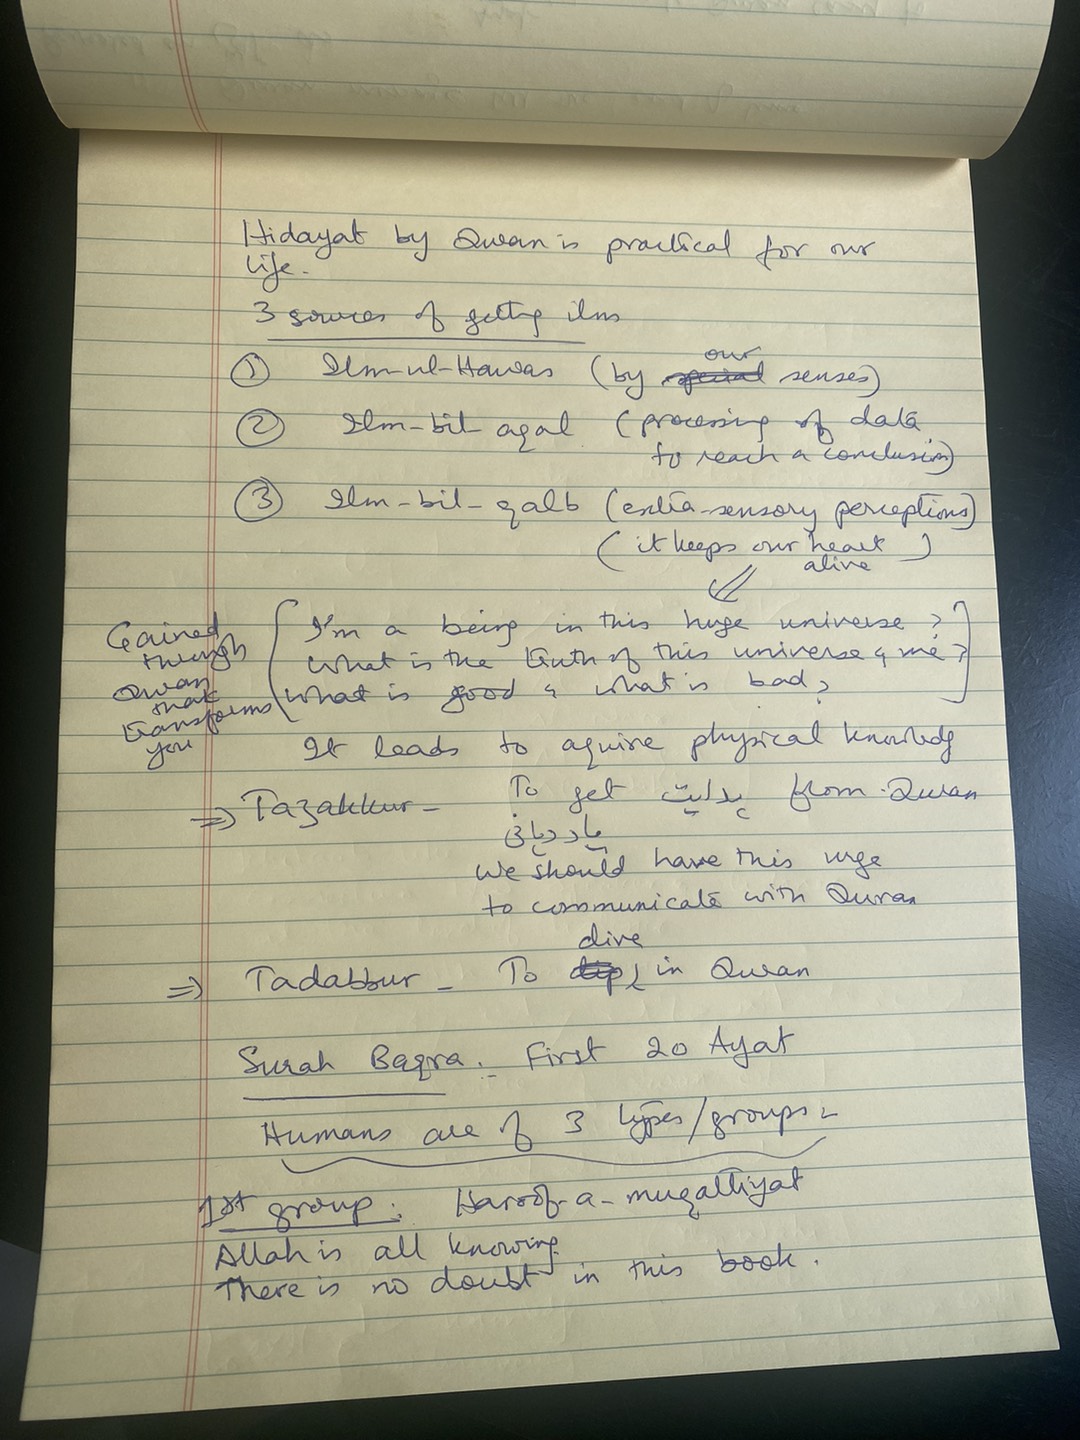 Hidayat by Quran is practical for our
life.
3 sources of getting ilm
① Ilm-ul-Hawas (by our senses)
② Ilm-bil aqal (processing of data
to reach a conclusion)
③ Ilm-bil-qalb (extra-sensory perceptions)
(it keeps our heart alive)
I'm a being in this huge universe?
What is the truth of this universe & me?
What is good & what is bad?
Gained
through
Quran
that
transforms
you
It leads to aquire physical knowledg
⇒ Tazakkur - To get ہدایت from Quran
یاد دہانی
We should have this urge
to communicate with Quran
⇒ Tadabbur - To dive in Quran
Surah Baqra: First 20 Ayat
Humans are of 3 types/groups-
1st group: Haroof-a-muqattiyat
Allah is all knowing
There is no doubt in this book.